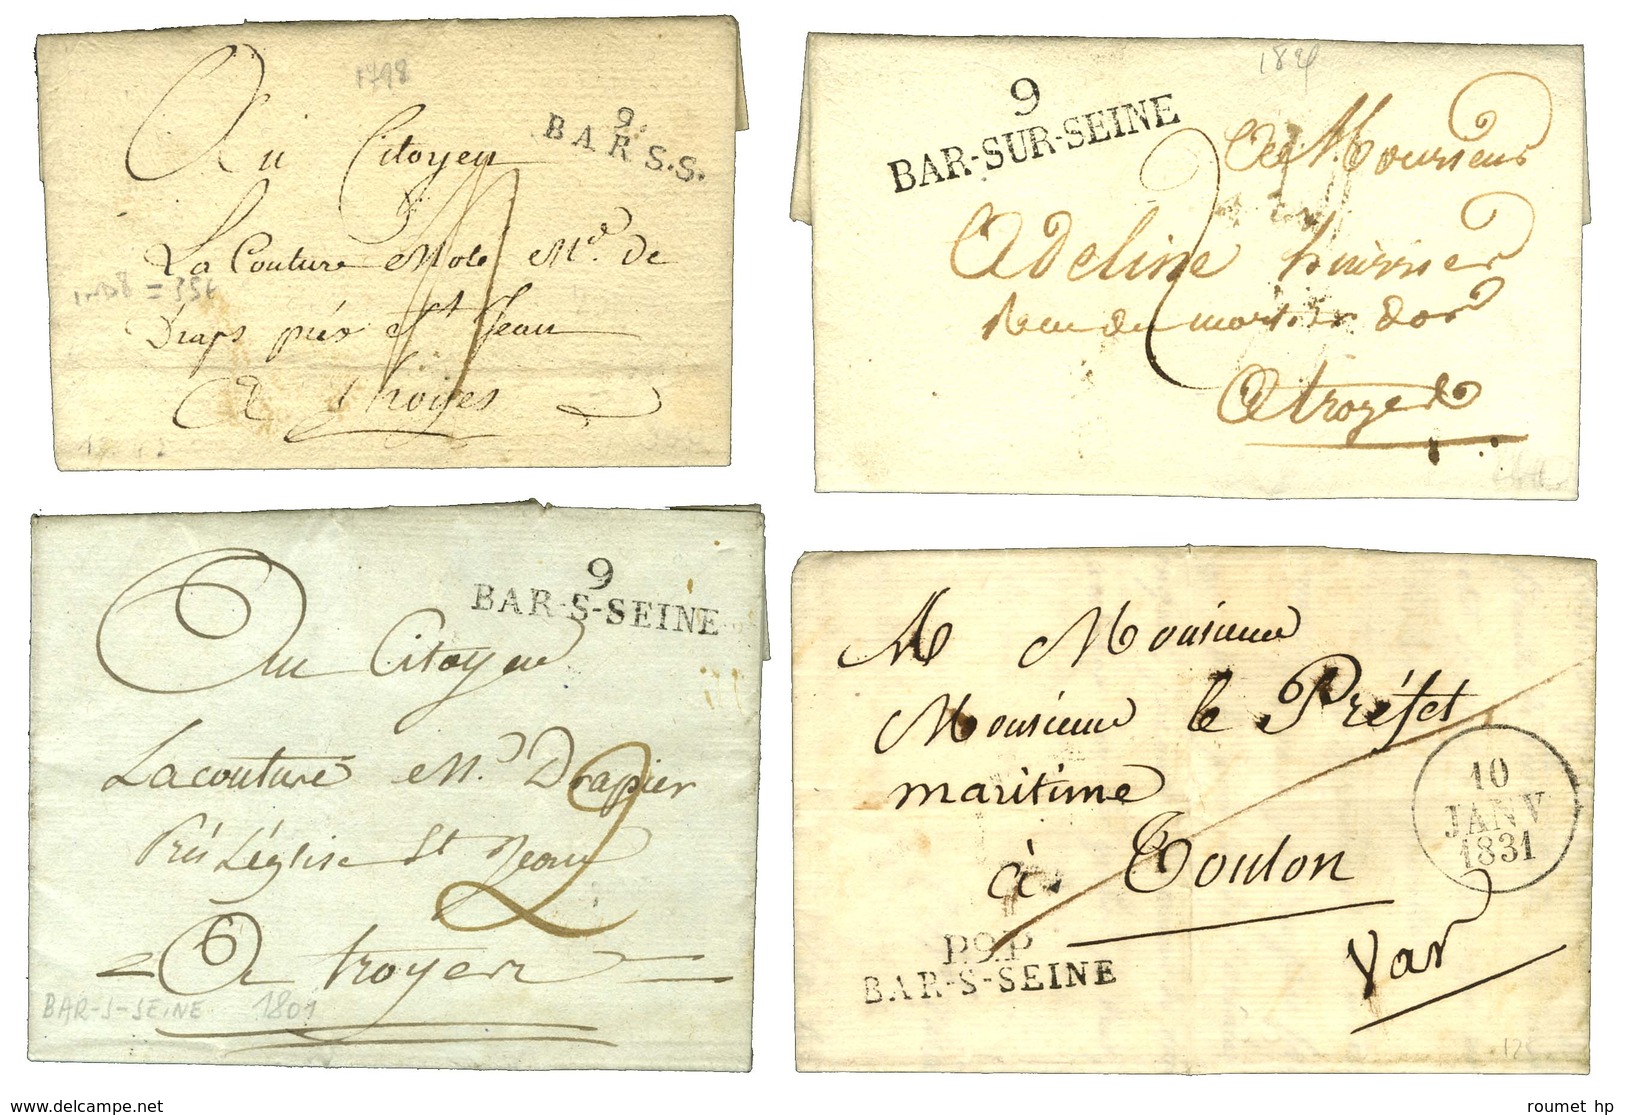 1798
9
BAR S.S.
Au Citoyen
La Couture Md. de
Draps près St Jean
A Troyes
182
9
BAR-SUR-SEINE
2
A Monsieur
Adeline huissier
Rue du mortier d'or
A troyes
9
BAR-S-SEINE
Au Citoyen
Lacouture Md. Drapier
Près L'église St Jean
2
A troyes
BAR-S-SEINE 1801
A Monsieur
Monsieur le Préfet
maritime
à Toulon
Var
10
JANV
1831
P.9.P
BAR-S-SEINE
www.delcampe.net
roumet hp